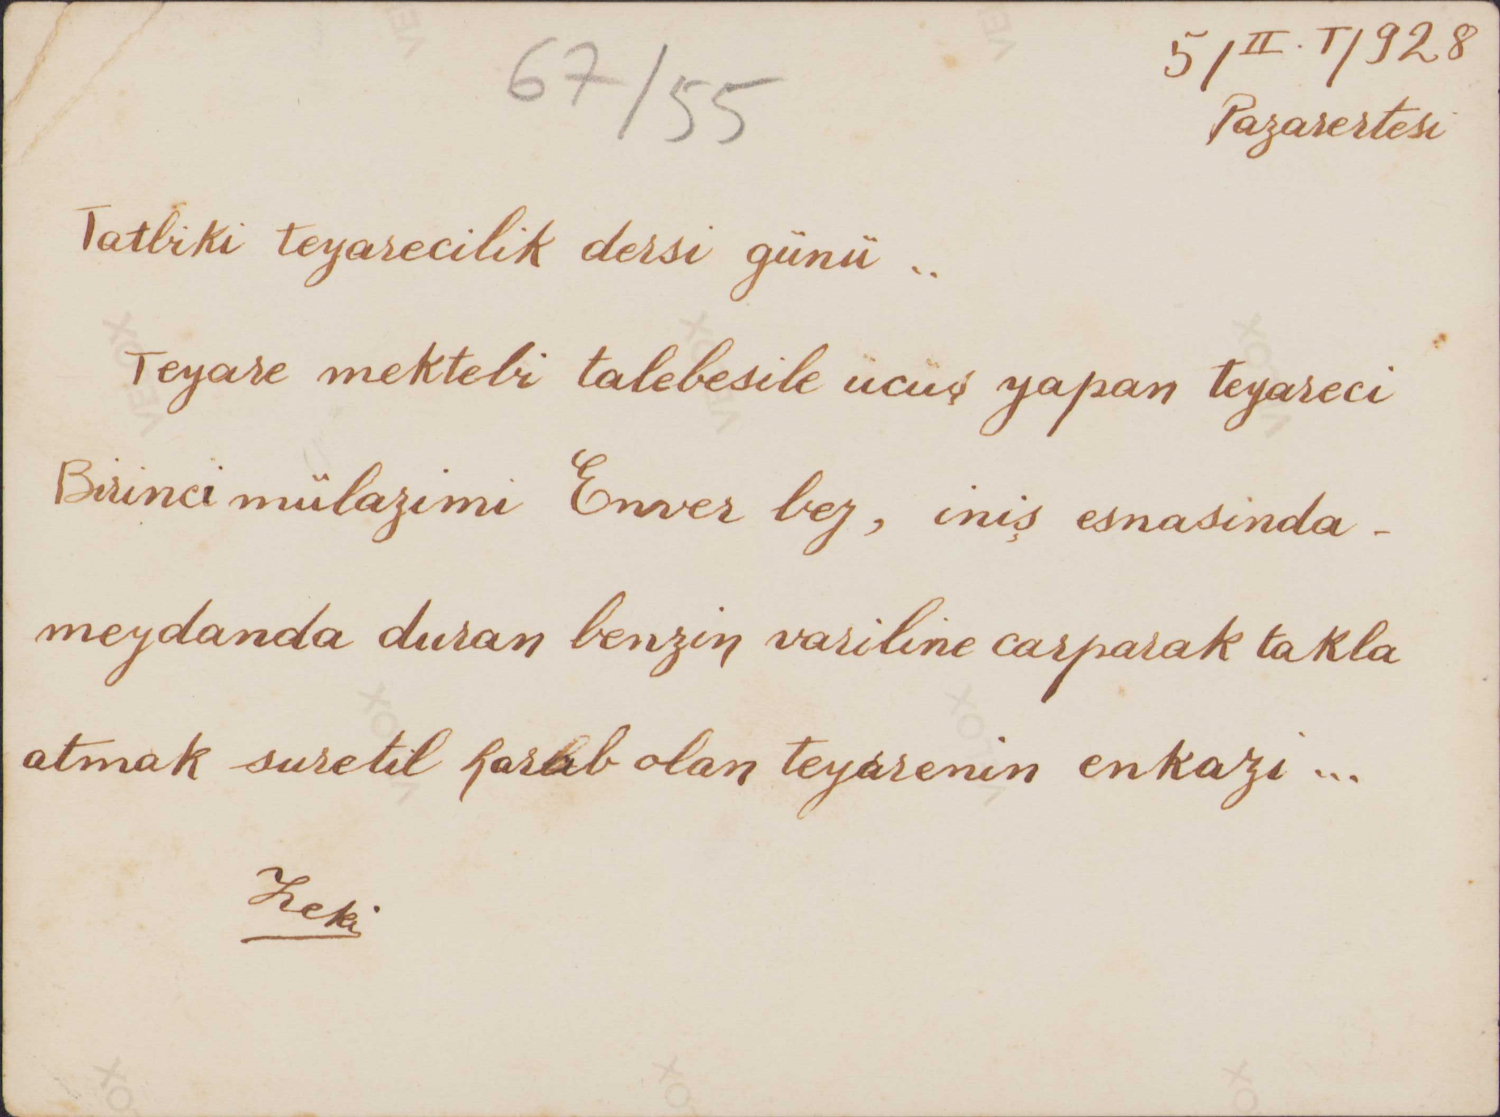 67/55
5/II.T/928
Pazarertesi
Tatbiki teyarecilik dersi günü ..
Teyare mektebi talebesile ücüş yapan teyareci
Birinci mülazimi Enver bey, iniş esnasinda -
meydanda duran benzin variline carparak takla
atmak suretil harab olan teyarenin enkazi ...
Zeki
VELOX
VELOX
VELOX
VELOX
VELOX